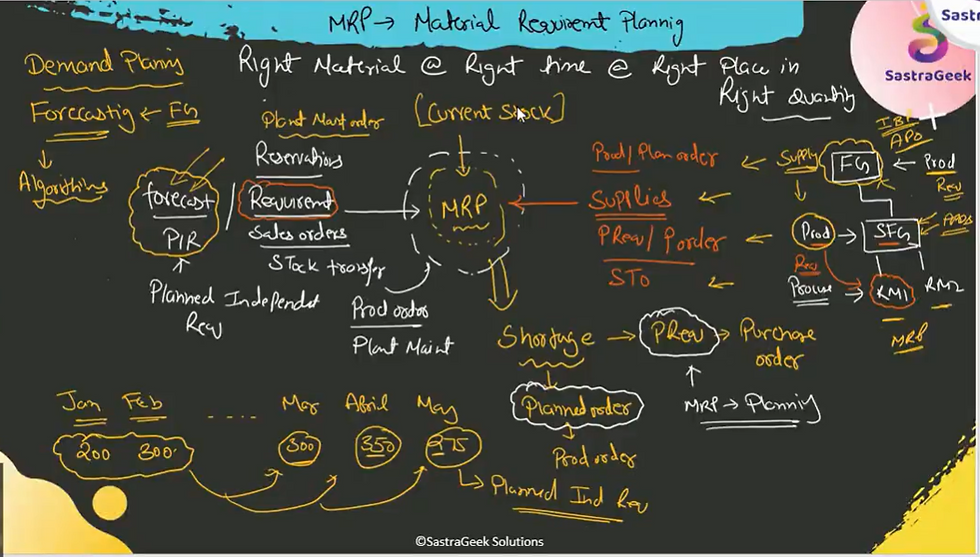 MRP → Material Requiremt Plannig
Sastra
SastraGeek
Demand Planing
Right Material @ Right time @ Right Place in
Right Quantity
Forecastig ← FG
Algorithms
Plant Maint order
[Current Stock]
Reservations
forecast / Requiremt
PIR
Sales orders
Stock transfer
Planned Independet
Req
Prod order
Plant Maint
MRP
Prod/Plan order
Supplies
PReq/Porder
STO
IBP
APO
Supply
FG ← Prod
Req
Prod → SFG
Req
Procure → RM1
RM2
MRP
Shortage → PReq → Purchase
order
Planned order
MRP → Planniy
Prod order
Jan Feb ..... Mar April May
200 300 300 350 275
Planned Ind Req
©SastraGeek Solutions